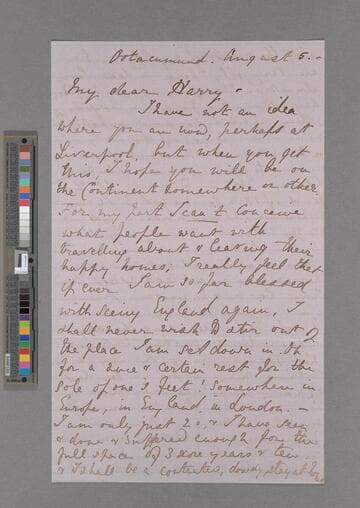 Ootacumund. August 5. -
My dear Harry -
I have not an idea
where you are now, perhaps at
Liverpool, but when you get
this, I hope you will be on
the Continent somewhere or other.
For my part I can't conceive
what people want with
travelling about & leaving their
happy homes; I really feel that
if ever I am so far blessed
with seeing England again, I
shall never wish to stir out of
the place I am set down in. Oh
for a sure & certain rest for the
sole of one's feet! Somewhere in
Europe, in England, in London. -
I am only just 20, & I have seen
& done & suffered enough for the
full space of 3 score years & ten,
& I shall be a contented, dowdy, stay at